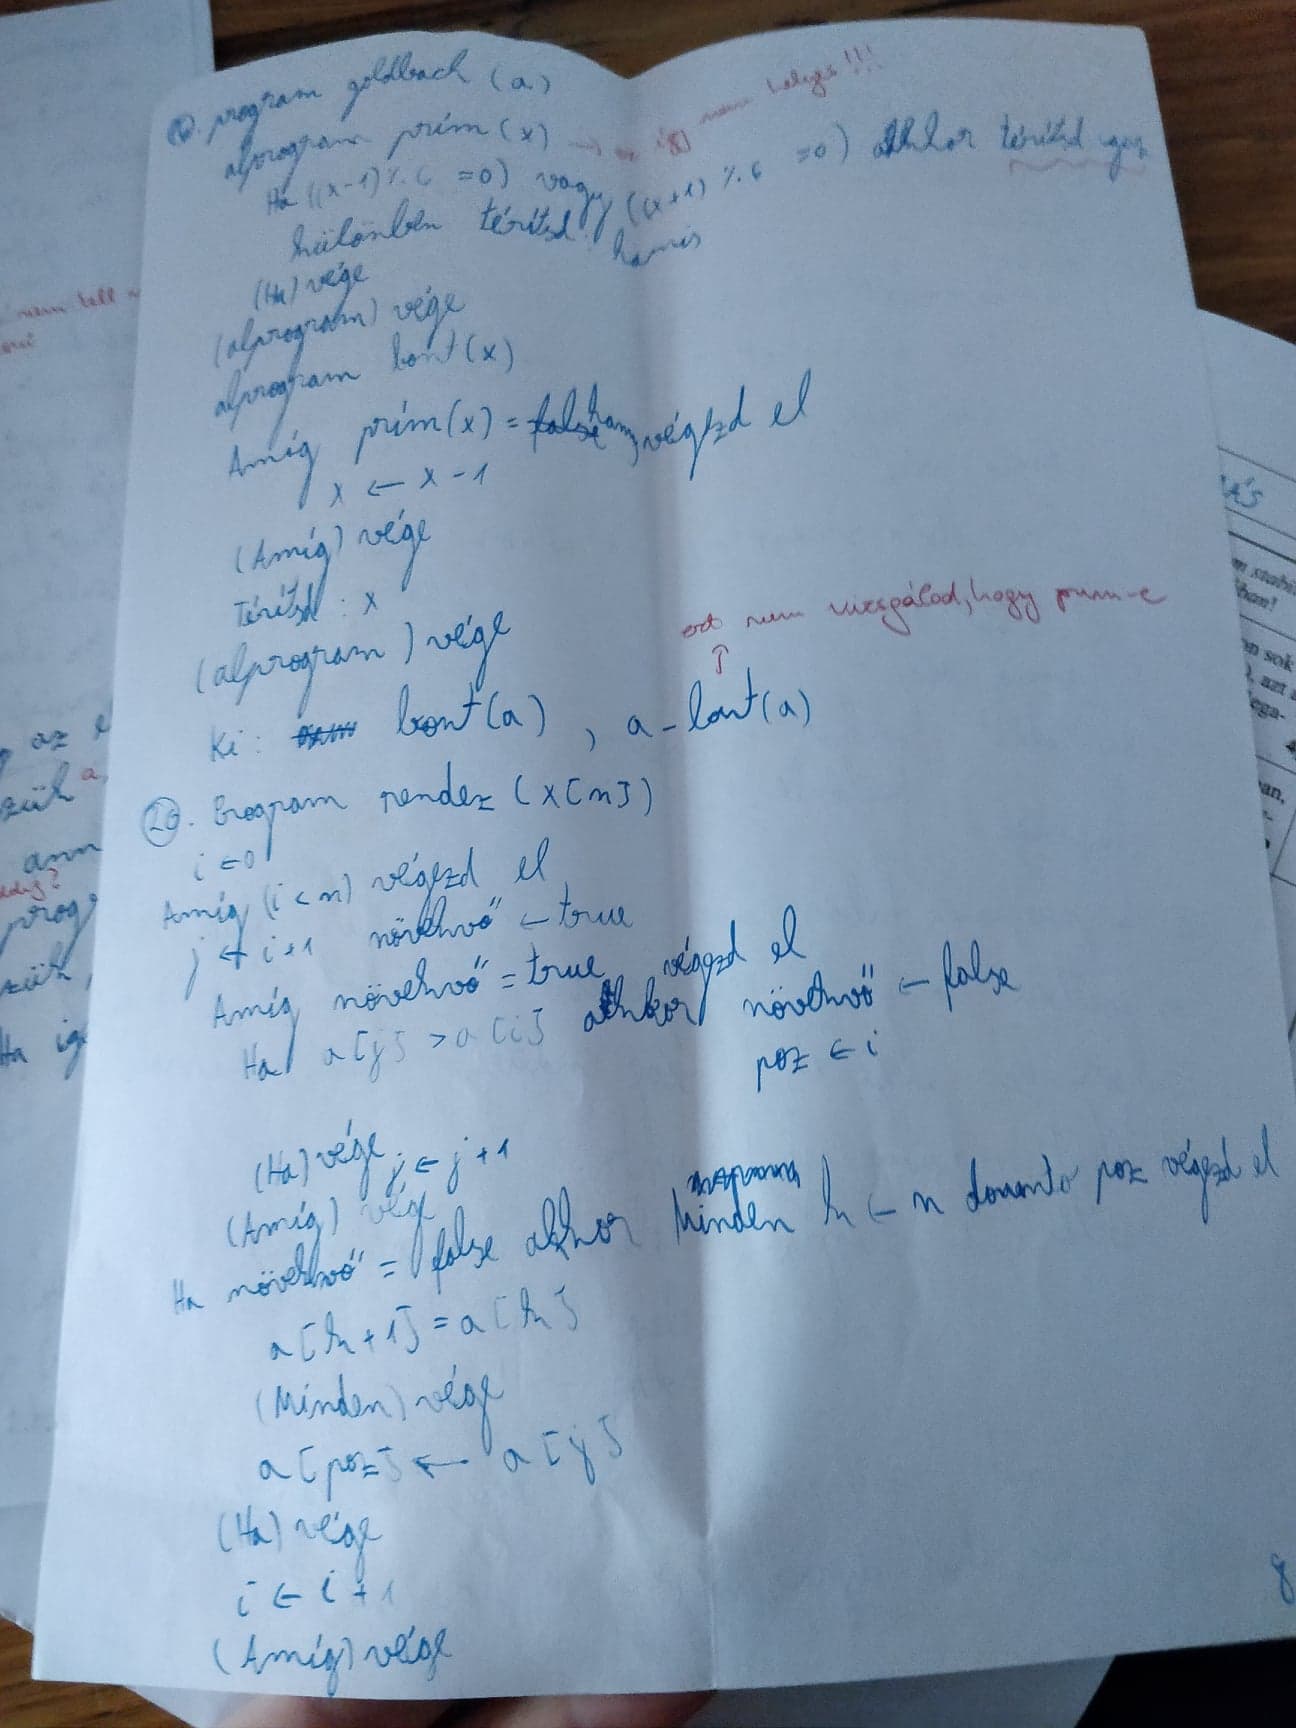 program goldbach (a)
alprogram prím (x) → nem helyes!!!
Ha ((x-1) % 6 =0) vagy ((x+1) % 6 =0) akkor térítsd igaz
különben térítsd: hamis
(Ha) vége
(alprogram) vége
alprogram bont(x)
Amíg prím(x) = hamis végezd el
x ← x - 1
(Amíg) vége
Térítsd : x
(alprogram) vége
ezt nem vizsgálod, hogy prím-e
↑
Ki : bont(a) , a - bont(a)
20. Program rendez (x[n])
i ← 0
Amíg (i < n) végezd el
j ← i + 1 növekvő ← true
Amíg növekvő = true végezd el
Ha a[j] > a[i] akkor növekvő ← false
poz ← i
(Ha) vége j ← j + 1
(Amíg) vége
Ha növekvő = false akkor Minden k ← n poz végezd el
a[k + 1] = a[k]
(Minden) vége
a[poz] ← a[j]
(Ha) vége
i ← i + 1
(Amíg) vége
8
nem kell
az
ann
prog
Ha ig